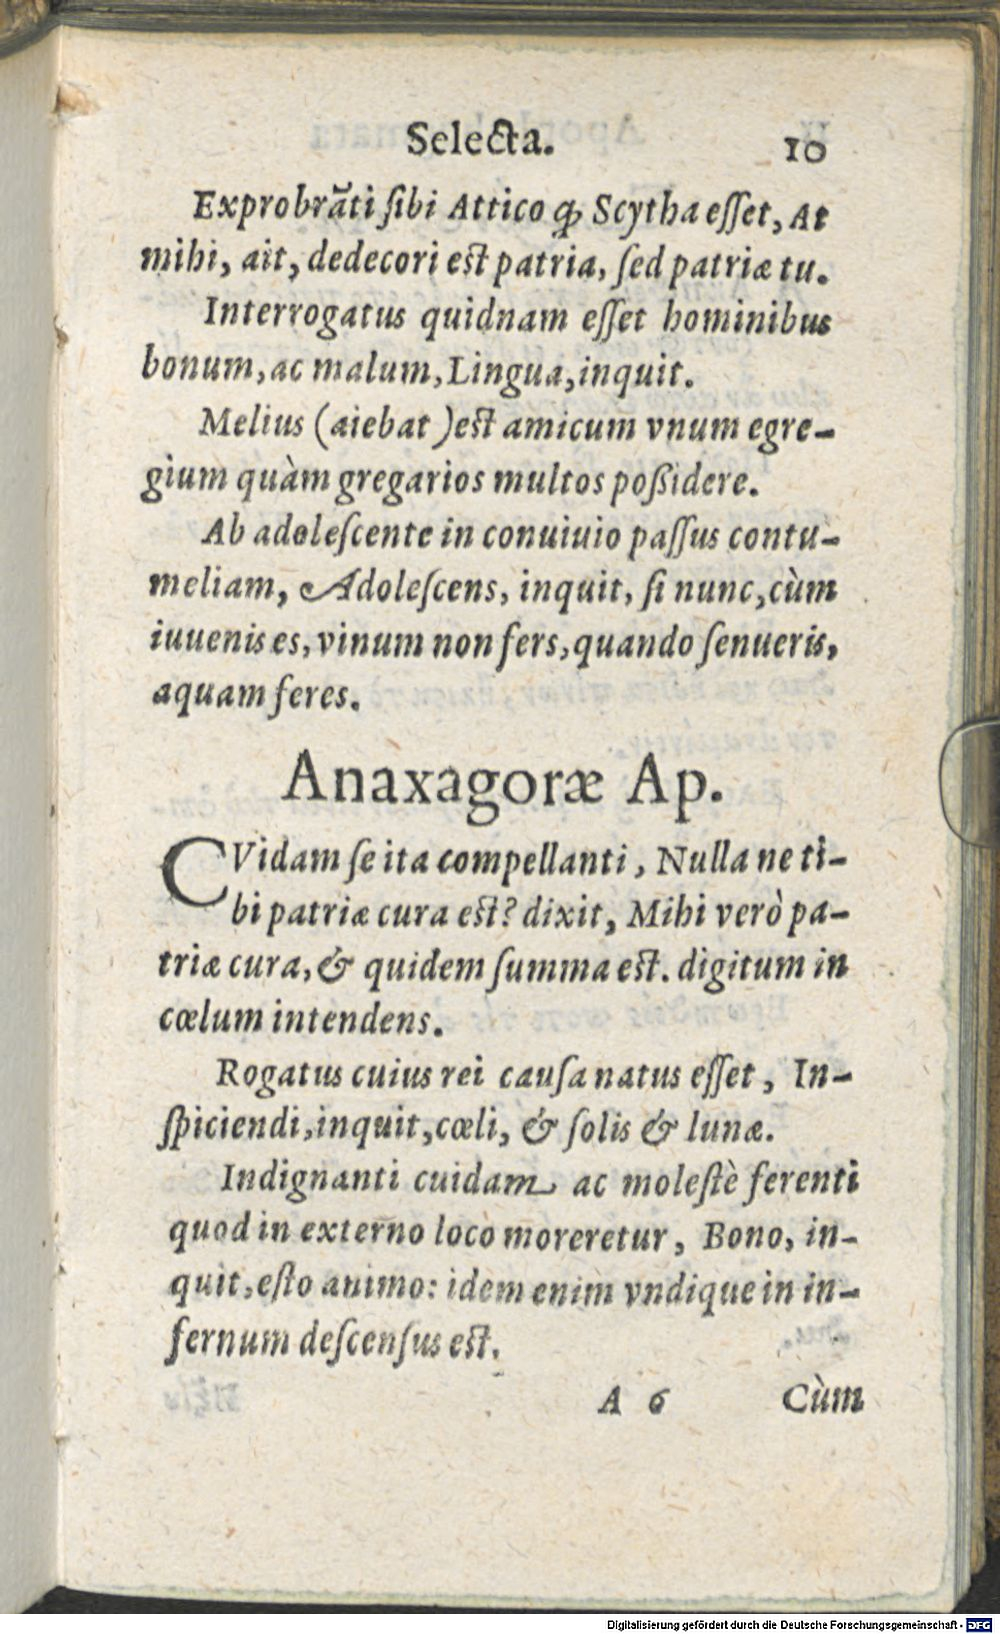 Selecta.
10
Exprobrãti ſibi Attico ꝙ Scytha eſſet, At
mihi, ait, dedecori est patria, ſed patriæ tu.
Interrogatus quidnam eſſet hominibus
bonum, ac malum, Lingua, inquit.
Melius (aiebat) est amicum vnum egre-
gium quàm gregarios multos poßidere.
Ab adoleſcente in conuiuio paſſus contu-
meliam, Adoleſcens, inquit, ſi nunc, cùm
iuuenis es, vinum non fers, quando ſenueris,
aquam feres.
Anaxagoræ Ap.
CVidam ſe ita compellanti, Nulla ne ti-
bi patriæ cura est? dixit, Mihi verò pa-
triæ cura, & quidem ſumma est. digitum in
cœlum intendens.
Rogatus cuius rei cauſa natus eſſet, In-
ſpiciendi, inquit, cœli, & ſolis & lunæ.
Indignanti cuidam ac moleſtè ferenti
quod in externo loco moreretur, Bono, in-
quit, eſto animo: idem enim vndique in in-
fernum deſcenſus est.
A 6
Cùm
Digitalisierung gefördert durch die Deutsche Forschungsgemeinschaft - DFG